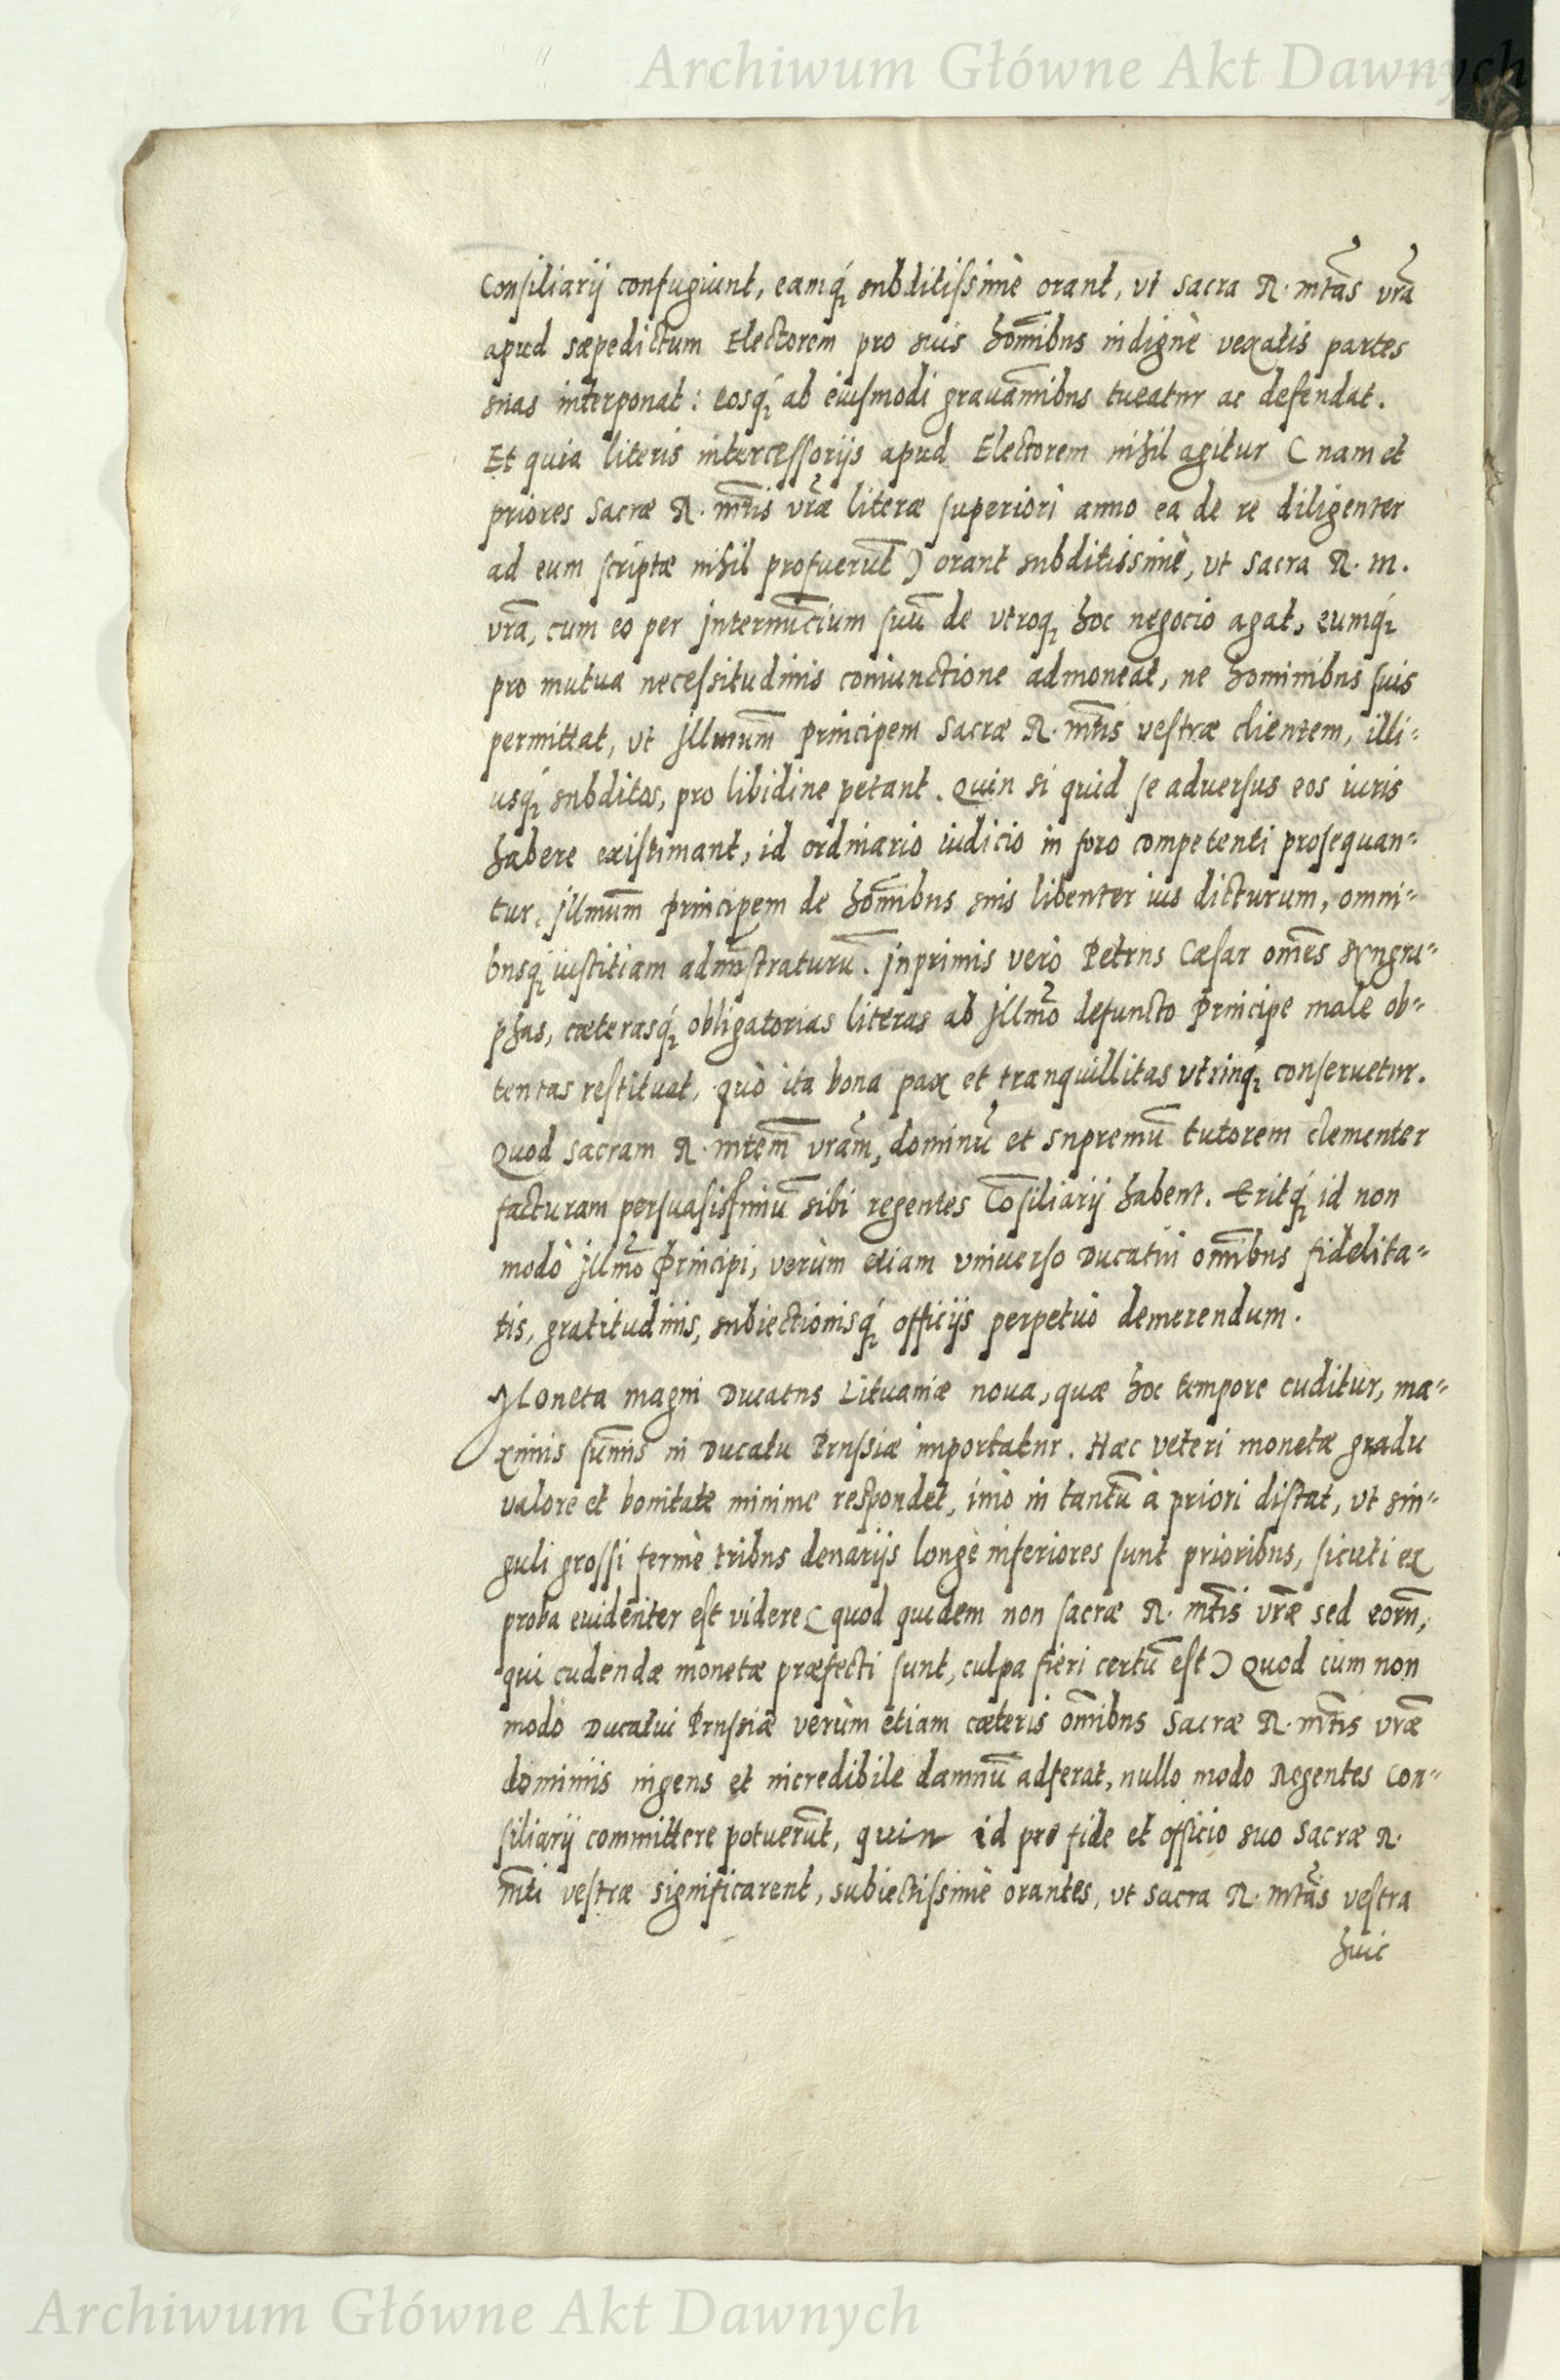 Archiwum Główne Akt Dawnych
Consiliarij confugiunt, eamq́; subditissimè orant, vt Sacra R. mtas vra
apud sæpedictum Electorem pro suis homibus indignè vexatis partes
suas interponat: eosq́; ab eiusmodi grauamibus tueatur ac defendat.
Et quia literis intercessorijs apud Electorem nihil agitur (nam et
priores Sacræ R. mtis vræ literæ superiori anno ea de re diligenter
ad eum scriptæ nihil profuerut) orant subditissimè, vt Sacra R. m.
vra, cum eo per jnternucium suu de vtroq; hoc negocio agat, eumq́;
pro mutua necessitudinis coniunctione admoneat, ne hominibus suis
permittat, vt jllmum principem Sacræ R. mtis vestræ clientem, illi-
usq́; subditos, pro libidine petant. Quin si quid se aduersus eos iuris
habere existimant, id ordinario iudicio in foro competenti prosequan-
tur. jllmum principem de homibus suis libenter ius dicturum, omni-
busq́; iustitiam admistraturu. jnprimis verò Petrus Cæsar omes syngra-
phas, cæterasq́; obligatorias literas ab jllmo defuncto Principe male ob-
tentas restituat, quò ita bona pax et tranquillitas vtrinq́; conseruetur.
Quod Sacram R. mtem vram, dominu et supremu tutorem clementer
facturam persuasissimu sibi regentes Cosiliarij habent. Eritq́; id non
modò jllmo Principi, verùm etiam vniuerso Ducatui omibus fidelita-
tis, gratitudinis, subiectionisq́; officijs perpetuò demerendum.
Moneta magni Ducatus Lituaniæ noua, quæ hoc tempore cuditur, ma-
ximis sumis in Ducatu Prussiæ importatur. Hæc veteri monetæ gradu
valore et bonitate minime respondet, imò in tantu à priori distat, vt sin-
guli grossi fermè tribus denarijs longè inferiores sunt prioribus, sicuti ex
proba euidenter est videre (quod quidem non sacræ R. mtis vræ sed eoru,
qui cudendæ monetæ præfecti sunt, culpa fieri certu est) Quod cum non
modò Ducatui Prussiæ verùm etiam cæteris omibus Sacræ R. mtis vræ
dominiis ingens et incredibile damnu adferat, nullo modo Regentes Con-
siliarij committere potuerut, quin id pro fide et officio suo Sacræ R.
mti vestræ significarent, subiectissimè orantes, vt Sacra R. mtas vestra
huic
Archiwum Główne Akt Dawnych